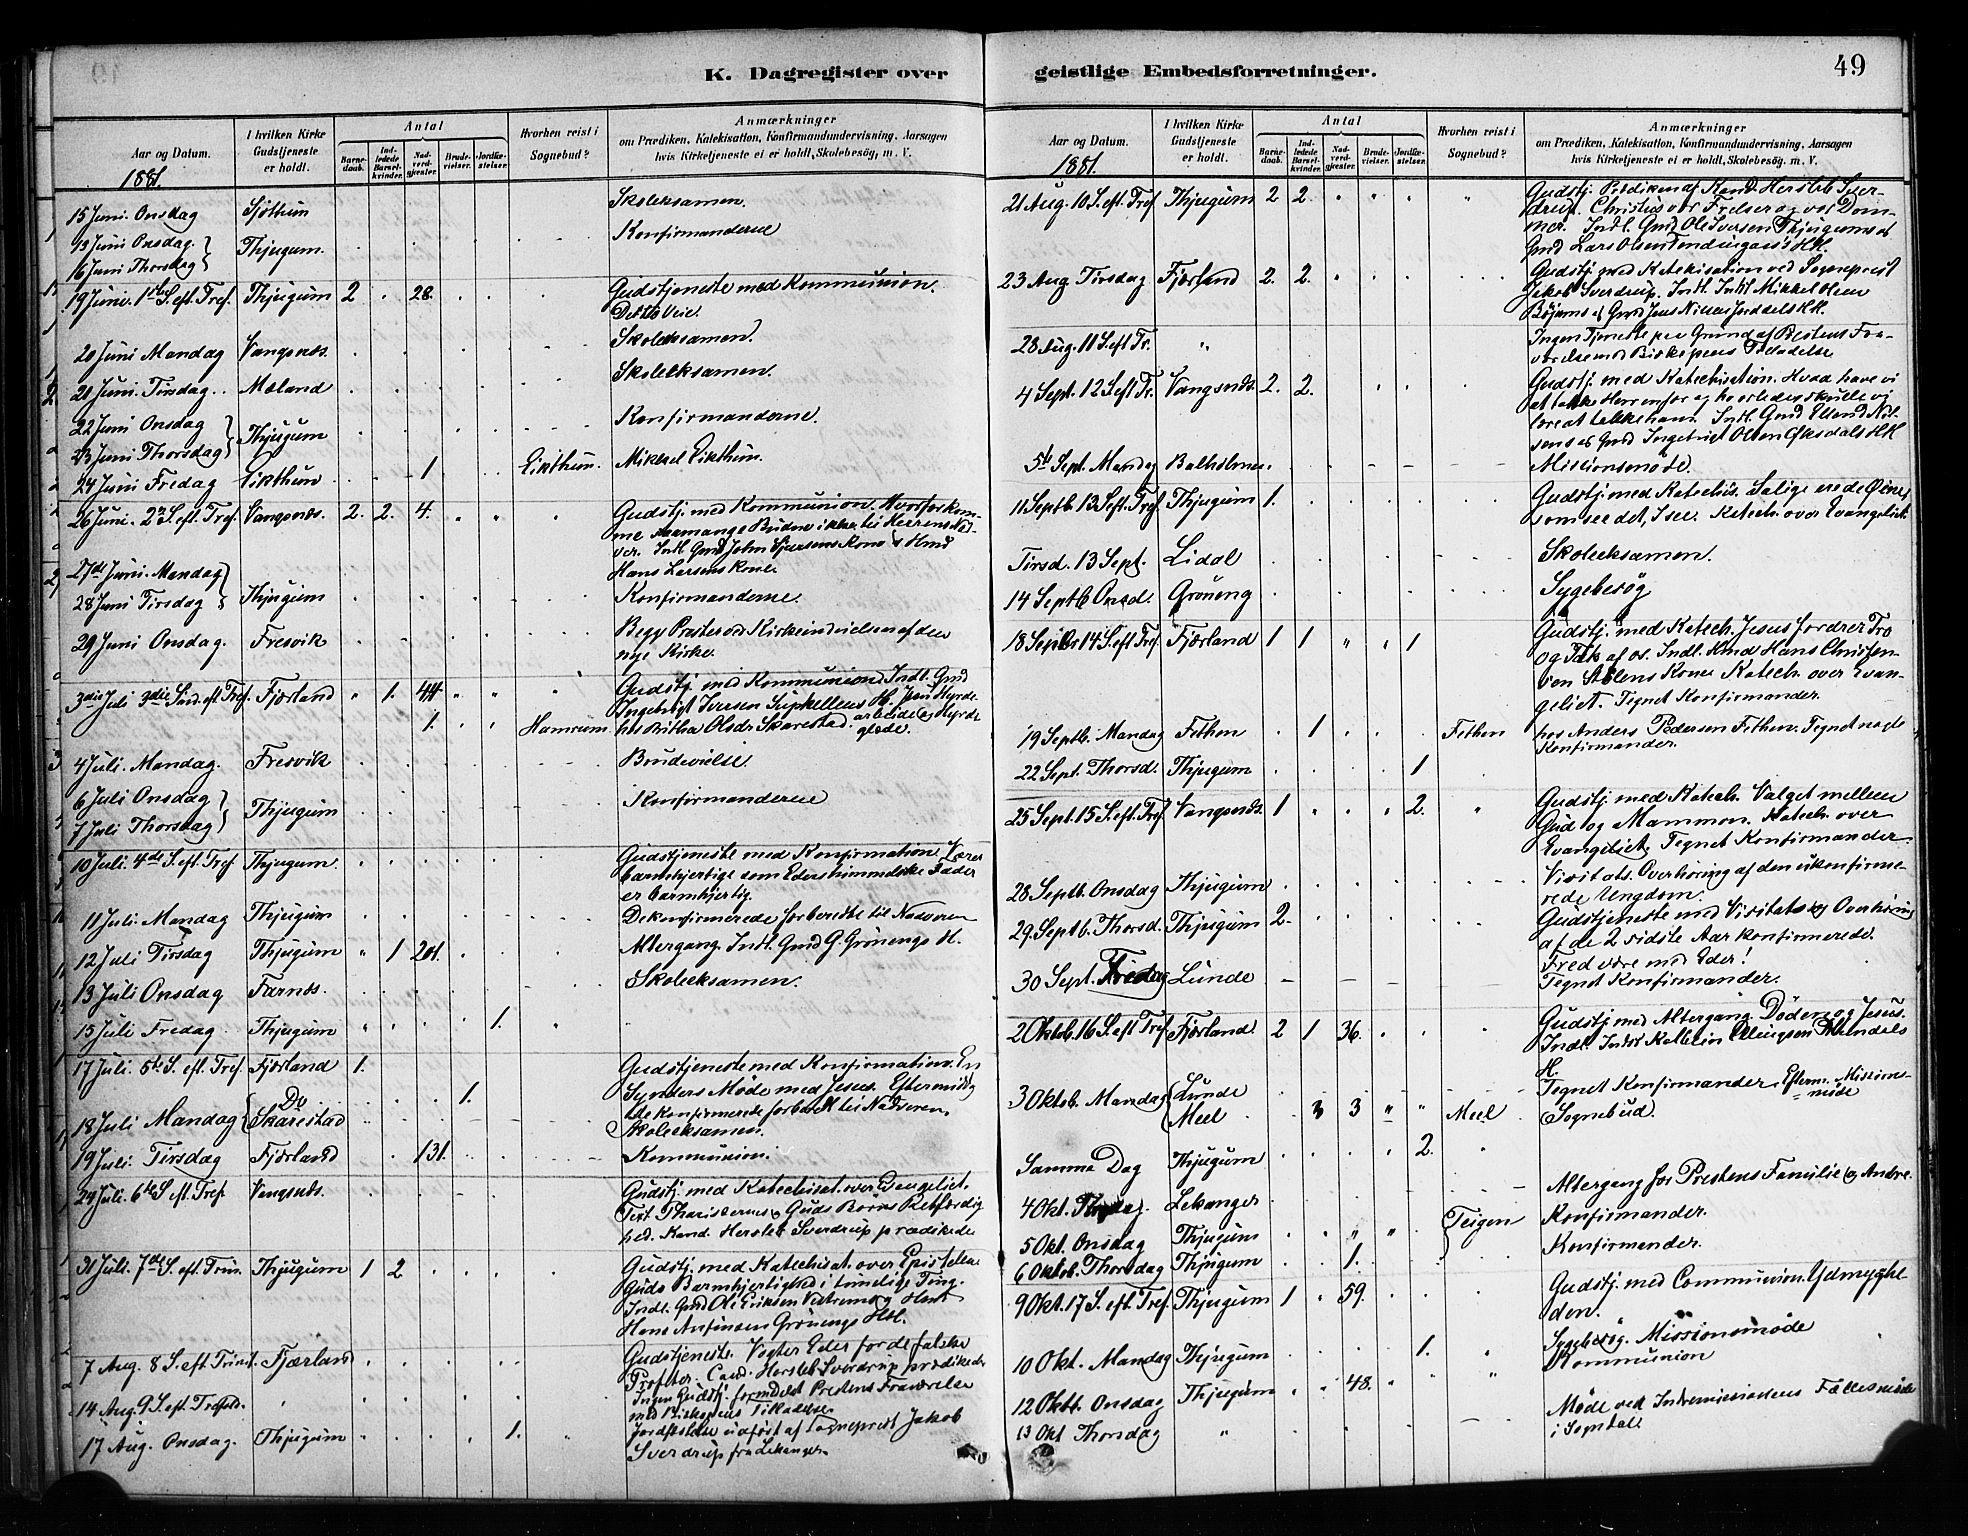 K. Dagregister over
Aar og Datum.
1881.
I hvilken Kirke
Gudstjeneste
er holdt.
Antal
Barne-
daab.
Ind-
ledede
Barsel-
kvinder.
Nad-
verd-
gjester.
Brude-
vielser.
Jordfæ-
stelser.
Hvorhen reist i
Sognebud?
Anmærkninger
om Prædiken, Katekisation, Konfirmandundervisning, Aarsagen
hvis Kirketjeneste ei er holdt, Skolebesøg, m. V.
15 Juni. Onsdag Sjøthun Skoleeksamen.
Juni Onsdag. Thjugum. Konfirmanderne
16 Juni Thorsdag
19 Juni. 1ste S. eft. Tref. Thjugum 2 28. Gudstjeneste med Kommunion.
De to Veie.
20 Juni Mandag Vangsnæs. Skoleeksamen.
21 Juni. Tirsdag. Mæland Skoleeksamen.
22 Juni Onsdag Thjugum Konfirmanderne.
23 Juni Thorsdag
24 Juni Fredag Eikthun 1 Eikthun. Mikkel Eikthun.
26 Juni. 2n S. eft. Tref. Vangsnæs. 2. 2. 4. Gudstj. med Kommunion. Hvorfor kom-
me saa mange Budne ikke til Herrens Nad-
ver. Indl. Gmd John Sjursens Kone & Hmd
Hans Larsens Kone.
27de Juni. Mandag Thjugum
28 Juni Tirsdag Konfirmanderne.
29 Juni Onsdag. Fresvik Begge Prester ved Kirkeindvielsen af den
nye Kirke.
3die Juli 3die Sønd. eft Tref. Fjærland 1. 44. Gudstj. med Kommunion Indl. Gmd
Ingebrigt Iversen H.
1. Hamrum. hos Britha Olsdr Skarestad.
4 Juli. Mandag. Fresvik Brudevielse
6 Juli Onsdag Thjugum Konfirmanderne
7 Juli Thorsdag
10 Juli. 4de S. eft. Tref Thjugum. Gudstjeneste med Konfirmation. Værer
barmhjertige som Eders himmelske Fader
er barmhjertig.
11 Juli. Mandag Thjugum De konfirmerede forberedte til Nadveren
12 Juli Tirsdag Thjugum 1 201. Altergang. Indl. Gmd G. Grønengs H.
13 Juli Onsdag Farnæs. Skoleeksamen.
15 Juli Fredag. Thjugum 1.
17 Juli. 5te S. eft. Tref. Fjærland 1. Gudstjeneste med Konfirmation. En
Synders Møde med Jesus. Eftermiddag
18 Juli Mandag Do 1. de konfirmerede forberedt til Nadveren.
Skarestad Skoleeksamen.
19 Juli. Tirsdag Fjærland 131. Kommunion.
24 Juli. 6te S eft. Tref. Vangsnæs. Gudstj. med Katechisat. over Evangeliet.
Text. Pharisæernes & Guds Børns Retfærdig
hed. Kand. Herslet Sverdrup prædikede
31 Juli. 7de S. eft Trin. Thjugum 1 2. Gudstj. med Katechisat. over Epistelen
Guds Barmhjertighed i timelige Ting.
Indl. Gmd Ole Eriksen & Hmd
Hans Grønengs HH.
7 Aug. 8 S. eft. Trinit. Fjærland Gudstjeneste. Vogter Eder for de falske
Profeter. Cand. Herslet Sverdrup prædikede
14 Aug. 9 S. eft. Trefold. Ingen Gudstj. formedelst Prestens Fraværelse
med Biskopens Tilladelse
17 Aug. Onsdag. Thjugum 1. Jordfæstelse udført af Sogneprest Jakob
Sverdrup fra Lekanger.
geistlige Embedsforretninger.
49
Aar og Datum.
1881.
I hvilken Kirke
Gudstjeneste
er holdt.
Antal
Barne-
daab.
Ind-
ledede
Barsel-
kvinder.
Nad-
verd-
gjester.
Brude-
vielser.
Jordfæ-
stelser.
Hvorhen reist i
Sognebud?
Anmærkninger
om Prædiken, Katekisation, Konfirmandundervisning, Aarsagen
hvis Kirketjeneste ei er holdt, Skolebesøg, m. V.
21 Aug. 10. S. eft. Tref Thjugum 2 2. Gudstj. Prædiken af Kand. Herslet Sver-
drup. Christus vor Frelser og vor Dom-
mer. Indl. Gmd Ole Iversen Thjugums &
Gmd Lars Olsen HH.
23 Aug Tirsdag Fjærland 2. 2. Gudstj med Katekisation ved Sogneprest
Jakob Sverdrup. Indl. Indst Mikkel Olsen
Bøjums & Gmd Jens Nilsen Jorddals HH.
28 Aug. 11 S. eft Tr. Ingen Tjeneste paa Grund af Prestens Fra-
værelse med Biskopens Tilladelse
4 Sept. 12 S eft Tr. Vangsnæs. 2. 2. Gudstj. med Katechisation. Hvad have vi
at takke Herren for og hvorledes skulle vi
lære at takke ham. Indl. Gmd Ellend Nil-
sens & Gmd Ingebrigt Olsen HH
5te Sept. Mandag Balholmen. Missionsmøde.
11 Septb. 13 S. eft. Tref Thjugum 1. Gudstj. med Katechis. Salige ere de Øine,
som see det, I see. Katech. over Evangeliet.
Tirsd. 13 Sept. Lidal Skoleeksamen.
14 Septb Onsd. Grøneng Sygebesøg
18 Septbr 14 S. eft Tref. Fjærland 1 1 1 Gudstj. med Katech. Jesus fordrer Tro
og Tak af os. Indl. Hmd Hans Christen-
sen Kone Katech. over Evan-
geliet. Tegnet Konfirmander.
19 Septb. Mandag Fethen 1 Fethen hos Anders Pedersen Fethen. Tegnet nogle
Konfirmander.
22 Sept. Thorsd. Thjugum 1
25 Sept. 15 S. eft. Tref Vangsnæs. 1 2. Gudstj. med Katech. Valget mellem
Gud og Mammon. Katech. over
Evangeliet. Tegnet Konfirmander.
28 Septb. Onsdag Thjugum Visitats. Overhøring af den ukonfirme-
rede Ungdom.
29. Septb. Thorsd. Thjugum 2. Gudstjeneste med Visitats og Overhøring
af de 2 sidste Aar konfirmerede.
Fred være med Eder!
30 Sept. Fredag Lunde Tegnet Konfirmander.
2 Oktob. 16 S. eft Tref. Fjærland. 2 1 36. Gudstj med Altergang. Døden og Jesus.
Indl. Indst Ellingsen Mundals
H.
3 Oktob. Mandag Lunde Tegnet Konfirmander. Efterm. Missions-
møde
Meel 3 3 Meel Sognebud.
Samme Dag Thjugum 2.
4 Okt. Lekanger Altergang for Prestens Familie & Andre.
5 Okt. Onsdag Thjugum Teigen Konfirmander.
6 Oktob. Thorsdag Thjugum 1. Konfirmander.
9 Okt. 17 S. eft. Tref. Thjugum 1 59. Gudstj. med Communion. Ydmyghe-
den.
10 Okt. Mandag Thjugum 1. Sygebesøg. Missionsmøde
12 Oktb. Onsdag Thjugum 48. Kommunion
13 Okt Thorsdag Møde ved Indremissionens Fællesmøde
i Sogndal.